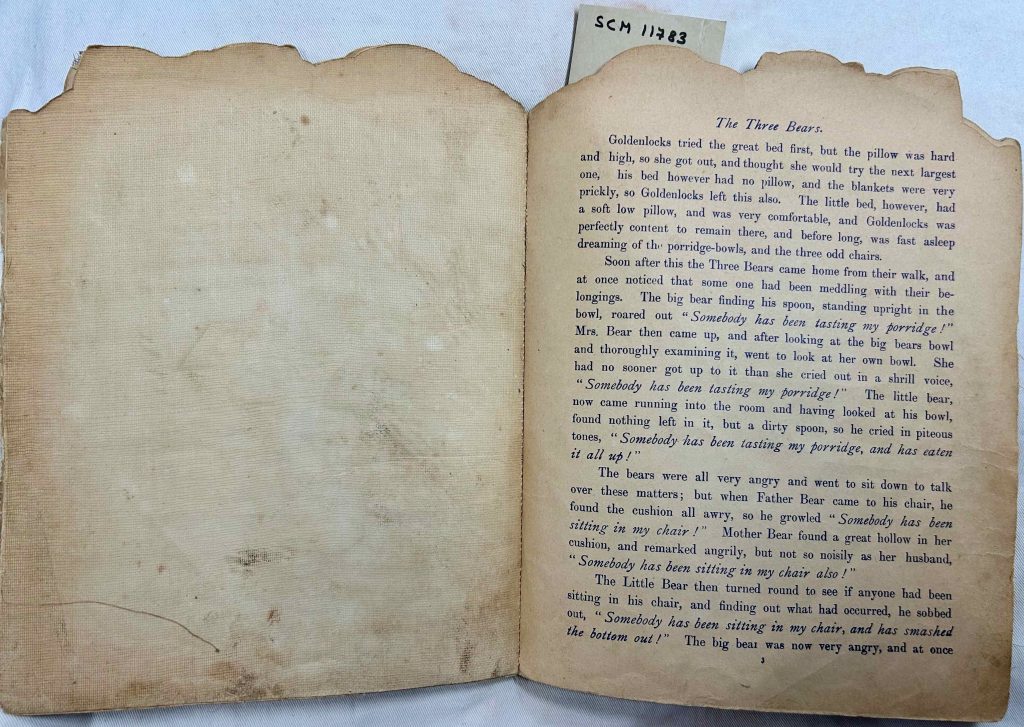 SCM 11783
The Three Bears.
Goldenlocks tried the great bed first, but the pillow was hard
and high, so she got out, and thought she would try the next largest
one, his bed however had no pillow, and the blankets were very
prickly, so Goldenlocks left this also. The little bed, however, had
a soft low pillow, and was very comfortable, and Goldenlocks was
perfectly content to remain there, and before long, was fast asleep
dreaming of the porridge-bowls, and the three odd chairs.
Soon after this the Three Bears came home from their walk, and
at once noticed that some one had been meddling with their be-
longings. The big bear finding his spoon, standing upright in the
bowl, roared out "Somebody has been tasting my porridge!"
Mrs. Bear then came up, and after looking at the big bears bowl
and thoroughly examining it, went to look at her own bowl. She
had no sooner got up to it than she cried out in a shrill voice,
"Somebody has been tasting my porridge!" The little bear,
now came running into the room and having looked at his bowl,
found nothing left in it, but a dirty spoon, so he cried in piteous
tones, "Somebody has been tasting my porridge, and has eaten
it all up!"
The bears were all very angry and went to sit down to talk
over these matters; but when Father Bear came to his chair, he
found the cushion all awry, so he growled "Somebody has been
sitting in my chair!" Mother Bear found a great hollow in her
cushion, and remarked angrily, but not so noisily as her husband,
"Somebody has been sitting in my chair also!"
The Little Bear then turned round to see if anyone had been
sitting in his chair, and finding out what had occurred, he sobbed
out, "Somebody has been sitting in my chair, and has smashed
the bottom out!" The big bear was now very angry, and at once
3